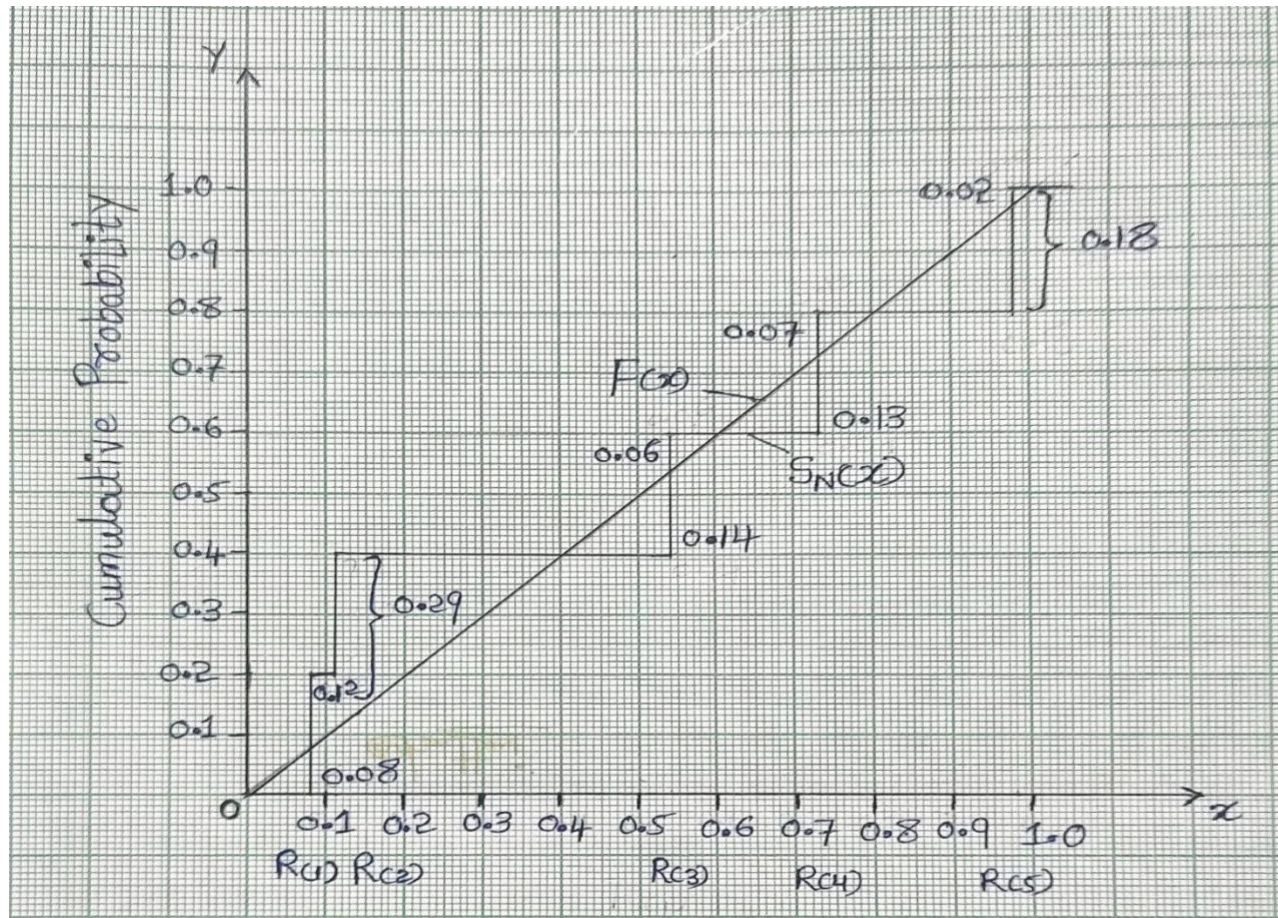 Y
Cumulative Probability
1.0
0.9
0.8
0.7
0.6
0.5
0.4
0.3
0.2
0.1
0
0.02
0.18
0.07
F(x)
0.13
0.06
SN(x)
0.14
0.29
0.12
0.08
0.1 0.2 0.3 0.4 0.5 0.6 0.7 0.8 0.9 1.0
x
R(1) R(2) R(3) R(4) R(5)